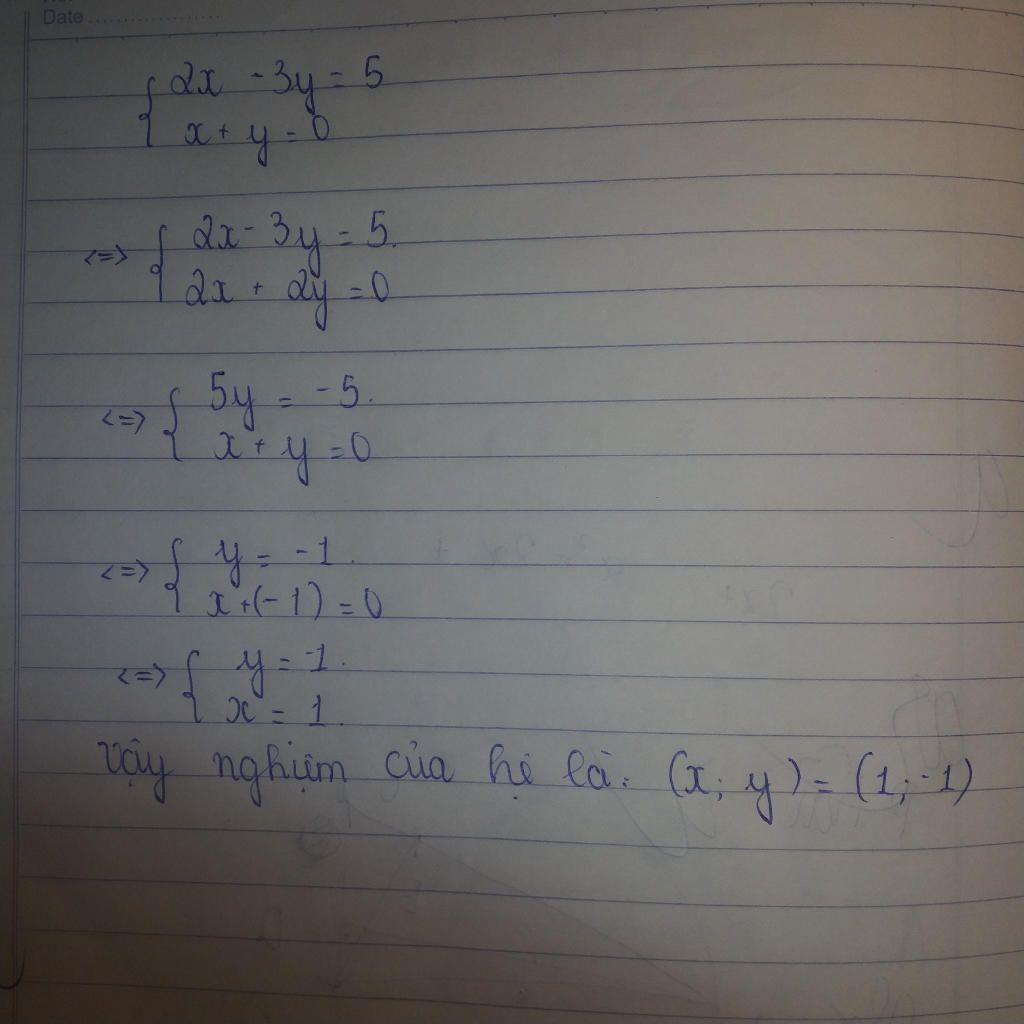 Date
{ 2x - 3y = 5
x + y = 0
<=> { 2x - 3y = 5.
2x + 2y = 0
<=> { 5y = -5.
x + y = 0
<=> { y = -1.
x + (-1) = 0
<=> { y = -1.
x = 1.
Vậy nghiệm của hệ là: (x; y) = (1; -1)